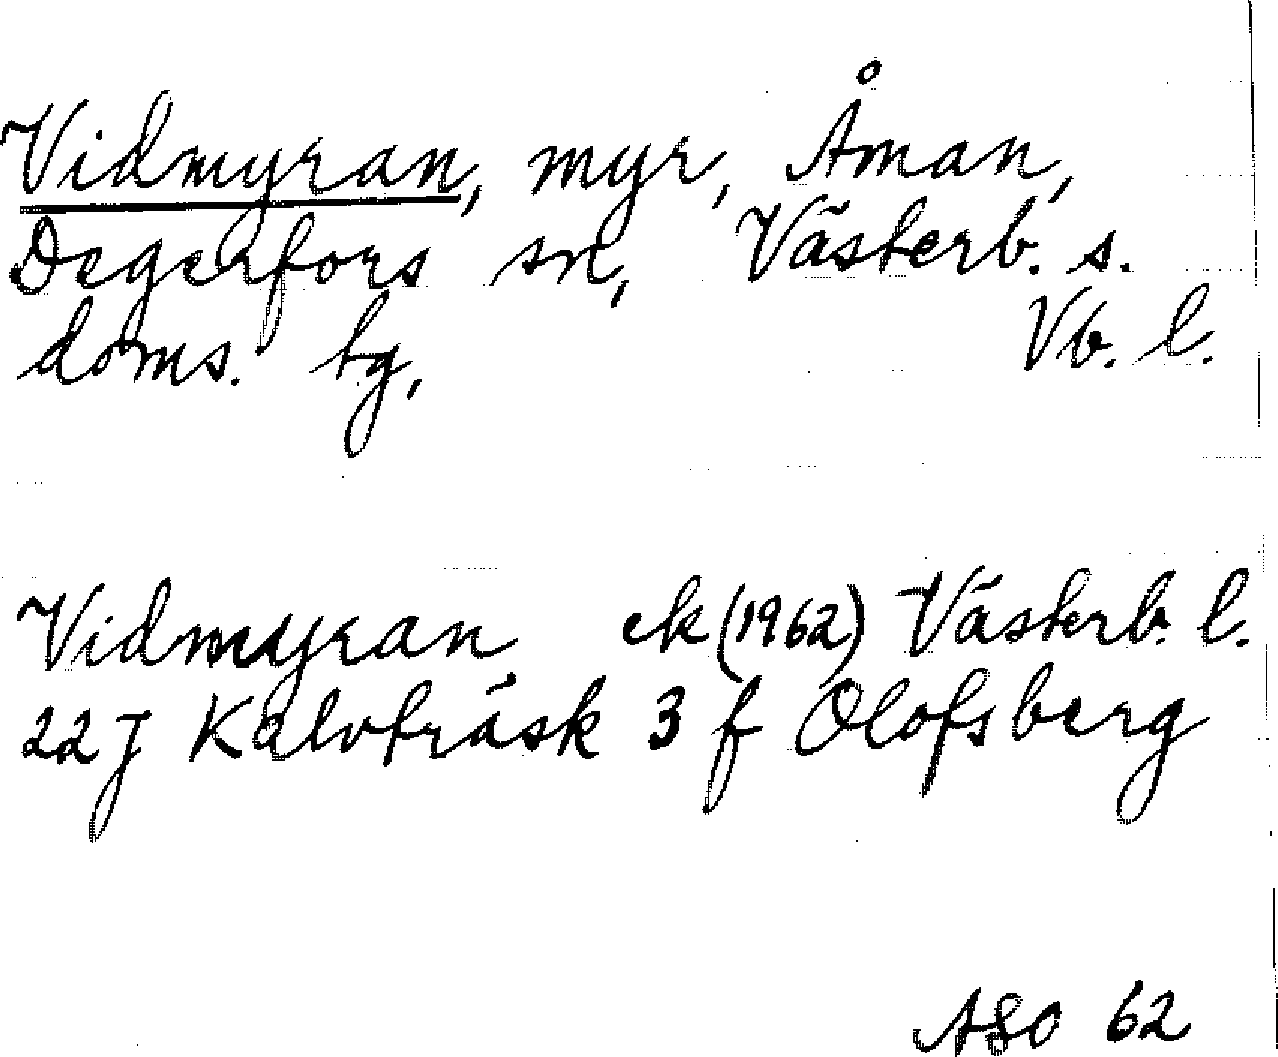 Vidmyran, myr, Åman,
Degerfors sn, Västerb. s.
doms. tg, Vb. l.
Vidmyran ek (1962) Västerb. l.
22 J Kalvträsk 3 f Olofsberg
ASO 62